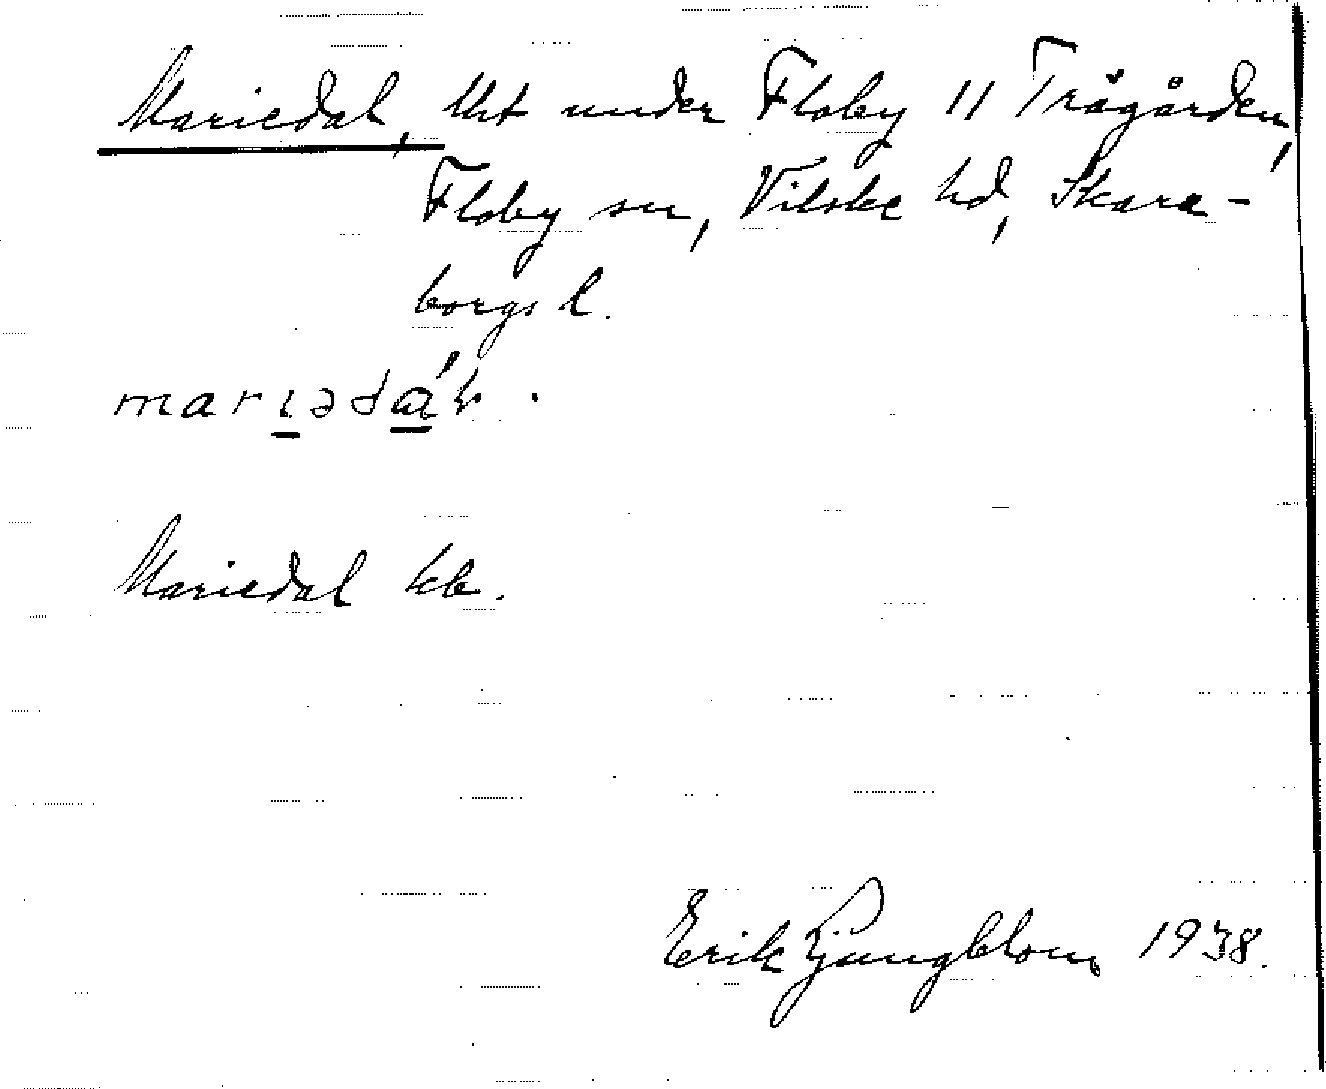 Mariedal, lht under Floby 11 Trågården,
Floby sn, Vilske hd, Skara-
borgs l.
marıədáɫ.
Mariedal kb.
Erik Ljungblom 1938.